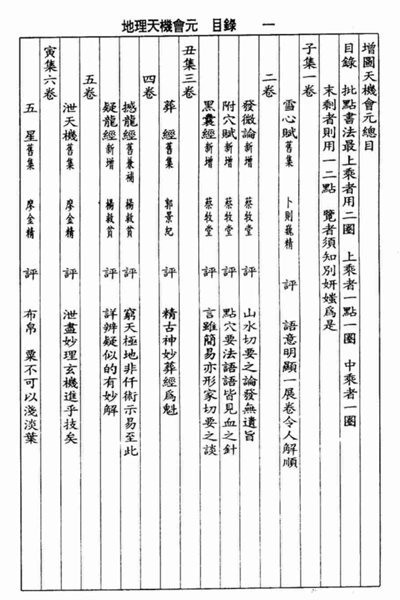 地理天機會元 目錄 一
增圖天機會元總目
目錄 批點書法最上乘者用二圈 上乘者一點一圈 中乘者一圈
末剩者則用一二點 覽者須知別妍媸為是
子集一卷
雪心賦舊集 卜則巍精 評 語意明顯一展卷令人解順
二卷
發微論新增 蔡牧堂 評 山水切要之論發無遺旨
附穴賦新增 蔡牧堂 評 點穴要法語語皆見血之針
黑囊經新增 蔡牧堂 評 言雖簡易亦形家切要之談
丑集三卷
葬 經舊集 郭景純 評 精古神妙葬經為魁
四卷
撼龍經舊兼補 楊救貧 評 窮天極地非仟術示易至此
疑龍經新增 楊救貧 評 詳辨疑似的有妙解
五卷
泄天機舊集 廖金精 評 泄盡妙理玄機進乎技矣
寅集六卷
五 星舊集 廖金精 評 布帛 粟不可以淺淡葉